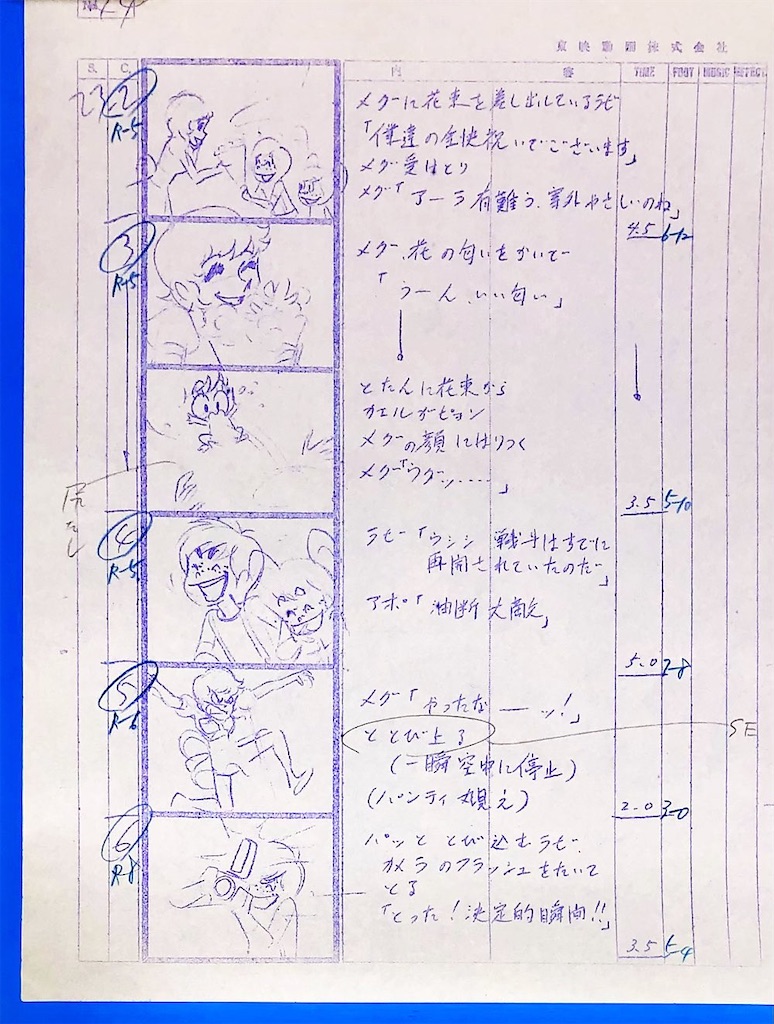 東映動画株式会社
S. C. 内 容 TIME FOOT MUSIC EFFECT
23 2
R-5
メグに花束を差し出しているラビ
「僕達の全快祝いでございます」
メグ受けとり
メグ「アーラ有難う、案外やさしいのね」
4.5 6-12
3
R-5
メグ、花の匂いをかいで
「うーん、いい匂い」
とたんに花束から
カエルがピョン
メグの顔にはりつく
メグ「ウグッ‥‥‥」
3.5 5-10
4
R-5
ラビ「ウシシ 戦斗はすでに
再開されていたのだ」
アポ「油断大敵」
5.0 7-8
5
R-6
メグ「やったな――ッ!」
ととび上る
SE
(一瞬空中に停止)
(パンティ見え)
2.0 3-0
6
R-8
パッと とび込むラビ、
カメラのフラッシュをたいて
とる
「とった!決定的瞬間!!」
3.5 5-4